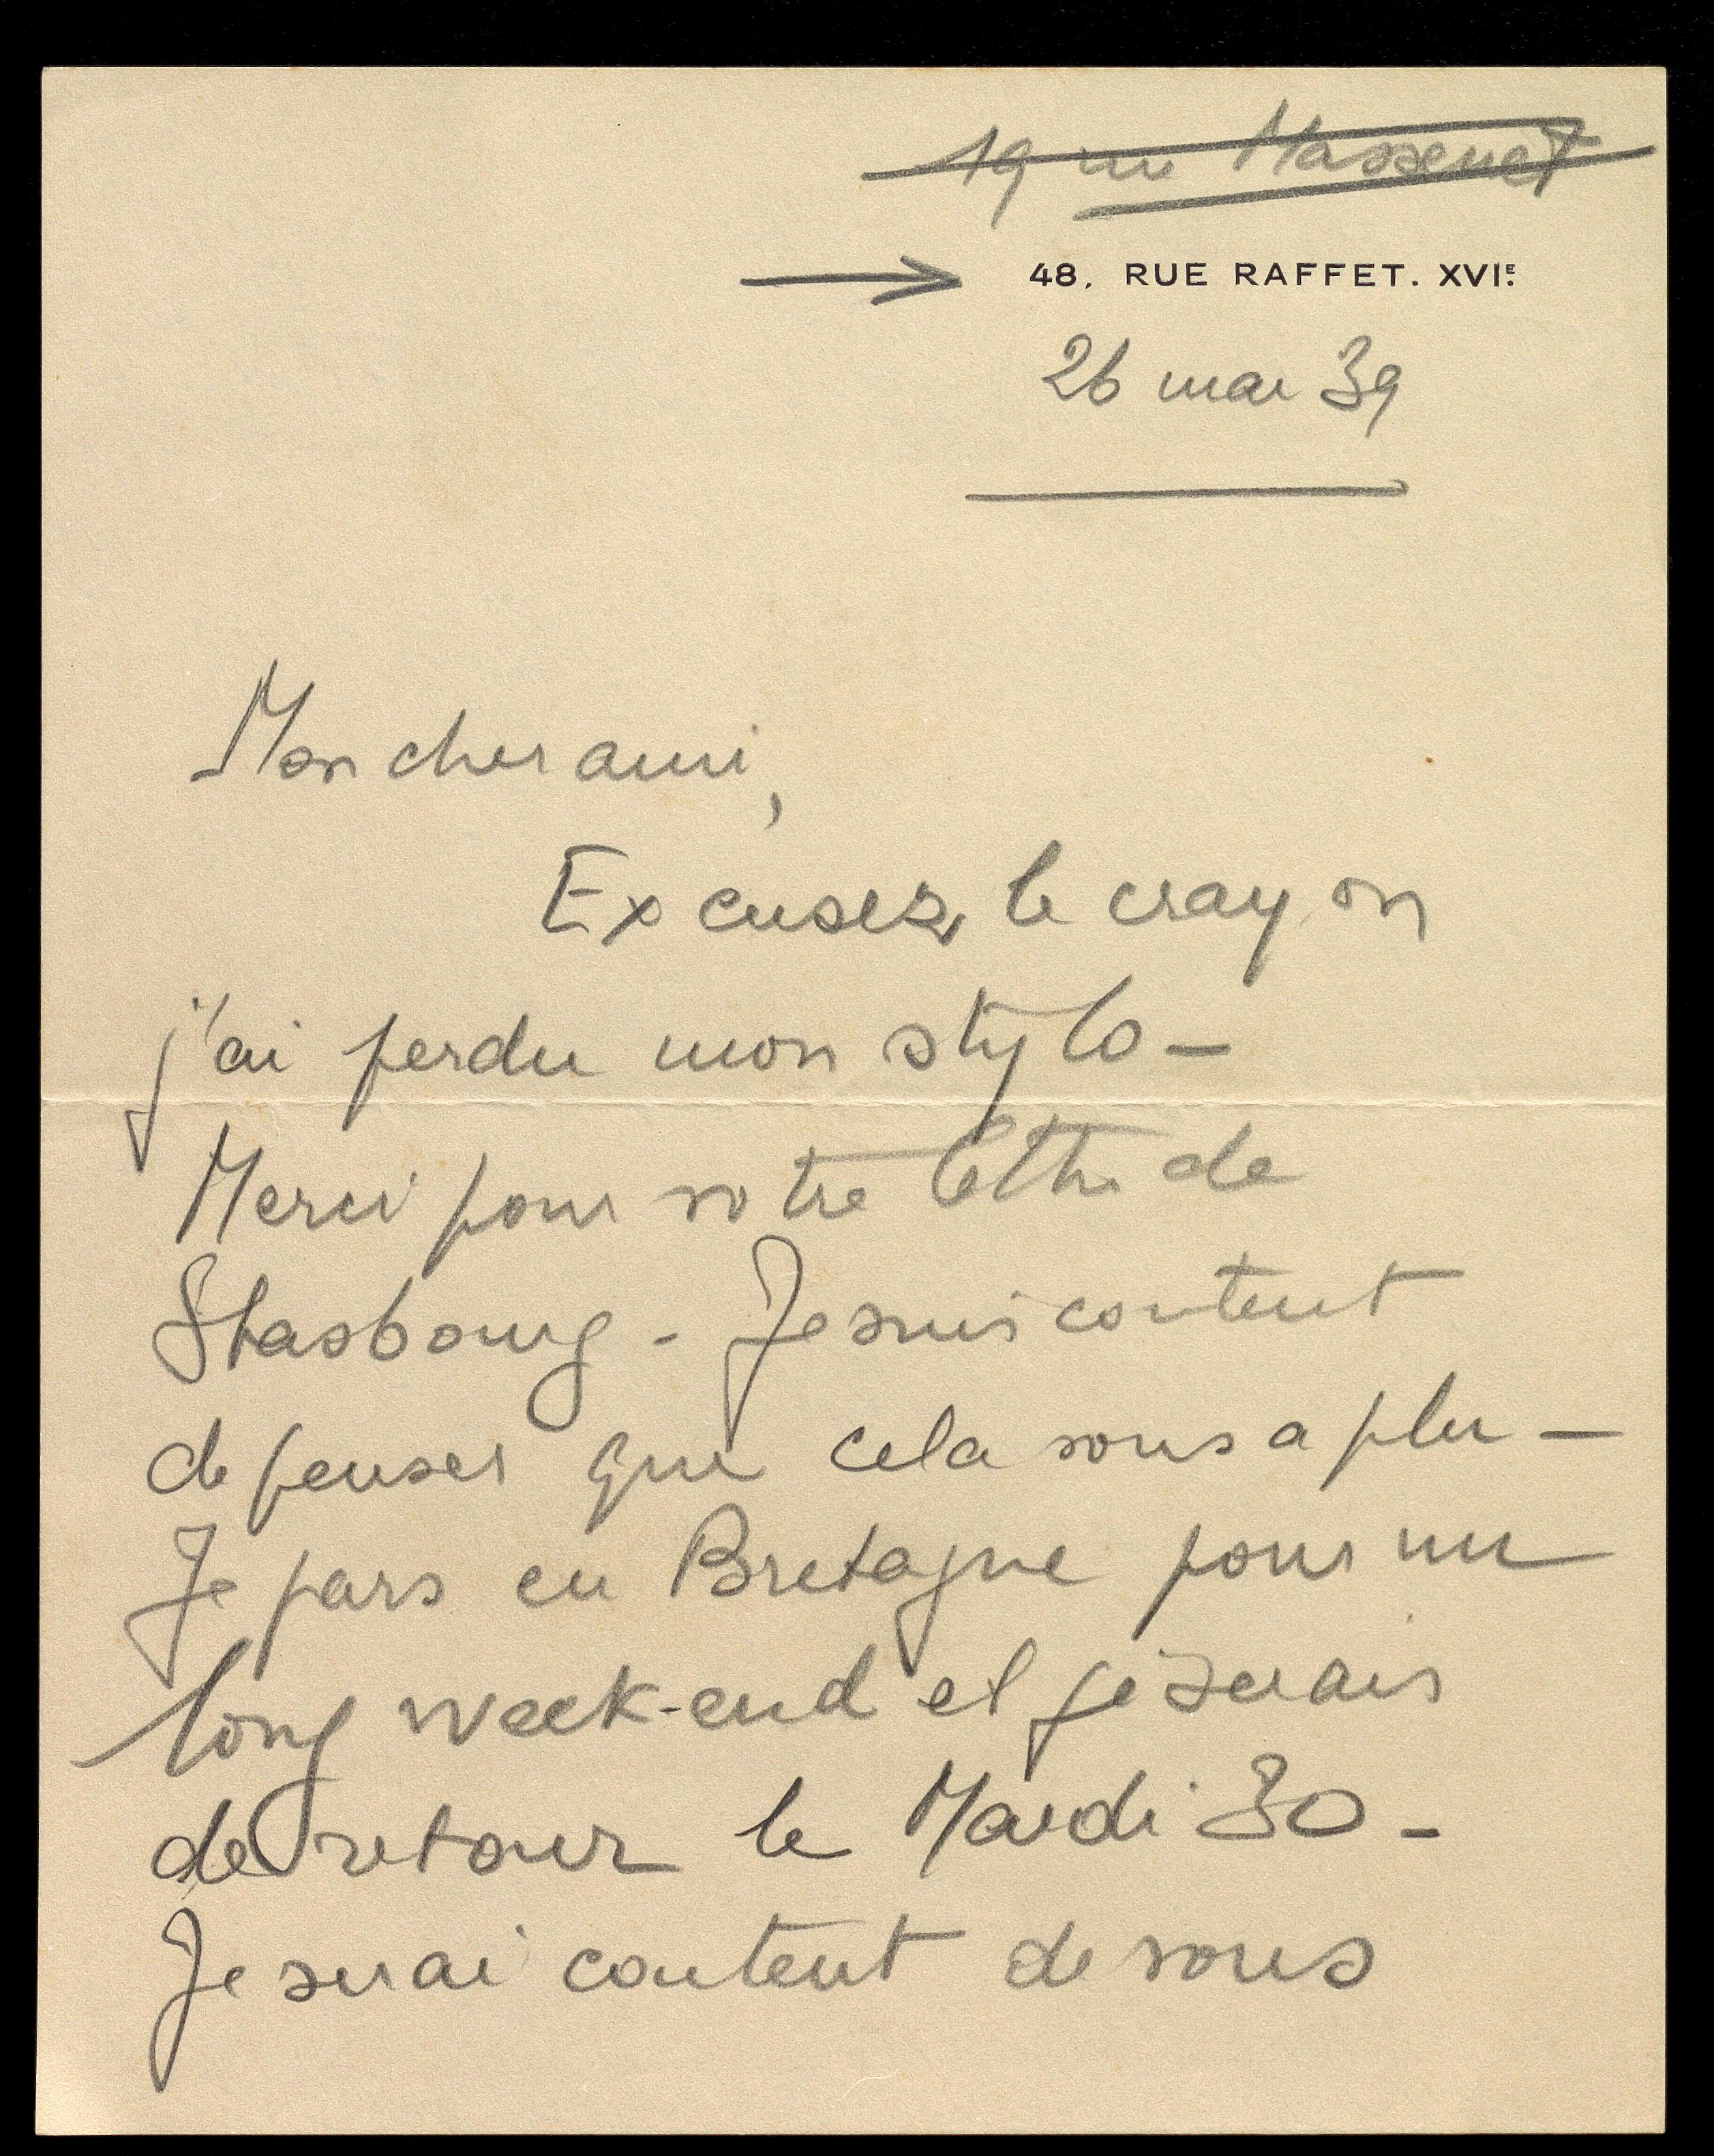 19 rue Massenet
48, RUE RAFFET. XVIE.
26 mai 39
Mon cher ami,
Excusez le crayon
j'ai perdu mon stylo -
Merci pour votre lettre de
Strasbourg - Je suis content
de penser que cela vous a plu -
Je pars en Bretagne pour un
long week-end et je serais
de retour le Mardi 30 -
Je serai content de vous